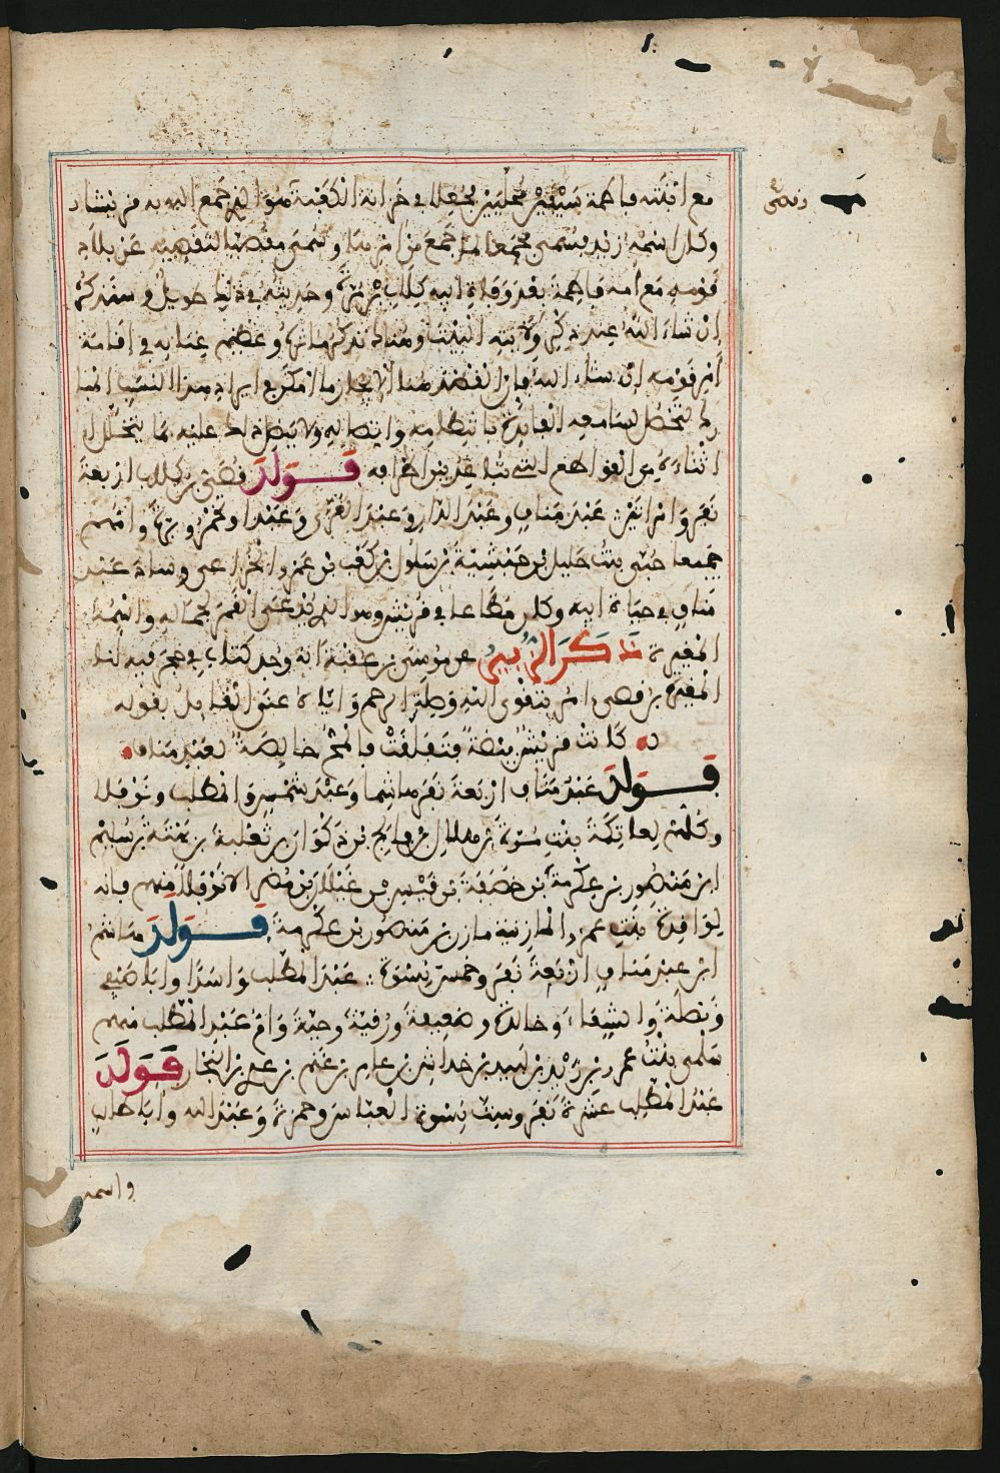 مع ابنته فاطمة سيفين محليين فجعلا في خزانة الكعبة هو الذي جمع الله به قريشا
وكان اسمه زيد يسمى مجمعا لما جمع من امر وسمى قصيا لتقصيه عن بلاد
قومه مع امه فاطمة بعد وفاة ابيه كلاب بن مرة وحديثه في ذلك طويل وسنذكره
ان شاء الله عند ذكر ولايته البيت وهناك نذكر وعظيم عنايه في اقامة
امر قومه ان شاء الله فان الغرض هنا الايجاز ما امكن في ايراد هذا النسب المبا
رك ليحصل لسامعه الفائدة بانتظامه واتصاله ولا يضر ذلك عليه ما يتخلل
اثناءه من القواطع التي تباعد بين اطرافه فولد قصي بن كلاب اربعة
نفر وامراتين عبد مناف وعبد الدار وعبد العزى وعبد اوتخمر وبرة وامهم
جميعا حبى بنت حليل بن حبشية بن سلول بن كعب بن عمرو الخزاعي وساد عبد
مناف في حياة ابيه وكان مطاعا في قريش وهو الذي يدعى القمر لجماله واسمه
المغيرة ذكر الزبير عن موسى بن عقبة انه وجد كتابا في حجر فيه انا
المغيرة بن قصي امر بتقوى الله وصلة الرحم واياه عنى القائل بقوله
كانت قريش بيضة فتفلقت فالمح خالصة لعبد مناف
فولد عبد مناف اربعة نفر هاشما وعبد شمس والمطلب ونوفلا
وكلهم لعاتكة بنت مرة بن هلال بن فالج بن ذكوان بن ثعلبة بن بهثة بن سليم
ابن منصور بن عكرمة بن خصفة بن قيس بن غيلان بن مضر الا نوفلا منهم فانه
لوافدة بنت عمرو المازنية مازن بن منصور بن عكرمة فولد هاشم
ابن عبد مناف اربعة نفر وخمس نسوة عبد المطلب واسدا وابا صيفي
ونضلة والشفا وخالدة وضعيفة ورقية وحية وام عبد المطلب منهم
سلمى بنت عمرو بن زيد بن لبيد بن خداش بن عامر بن غنم بن عدي بن النجار فولد
عبد المطلب عشرة نفر وست نسوة العباس وحمزة وعبد الله وابا طالب
واسمه